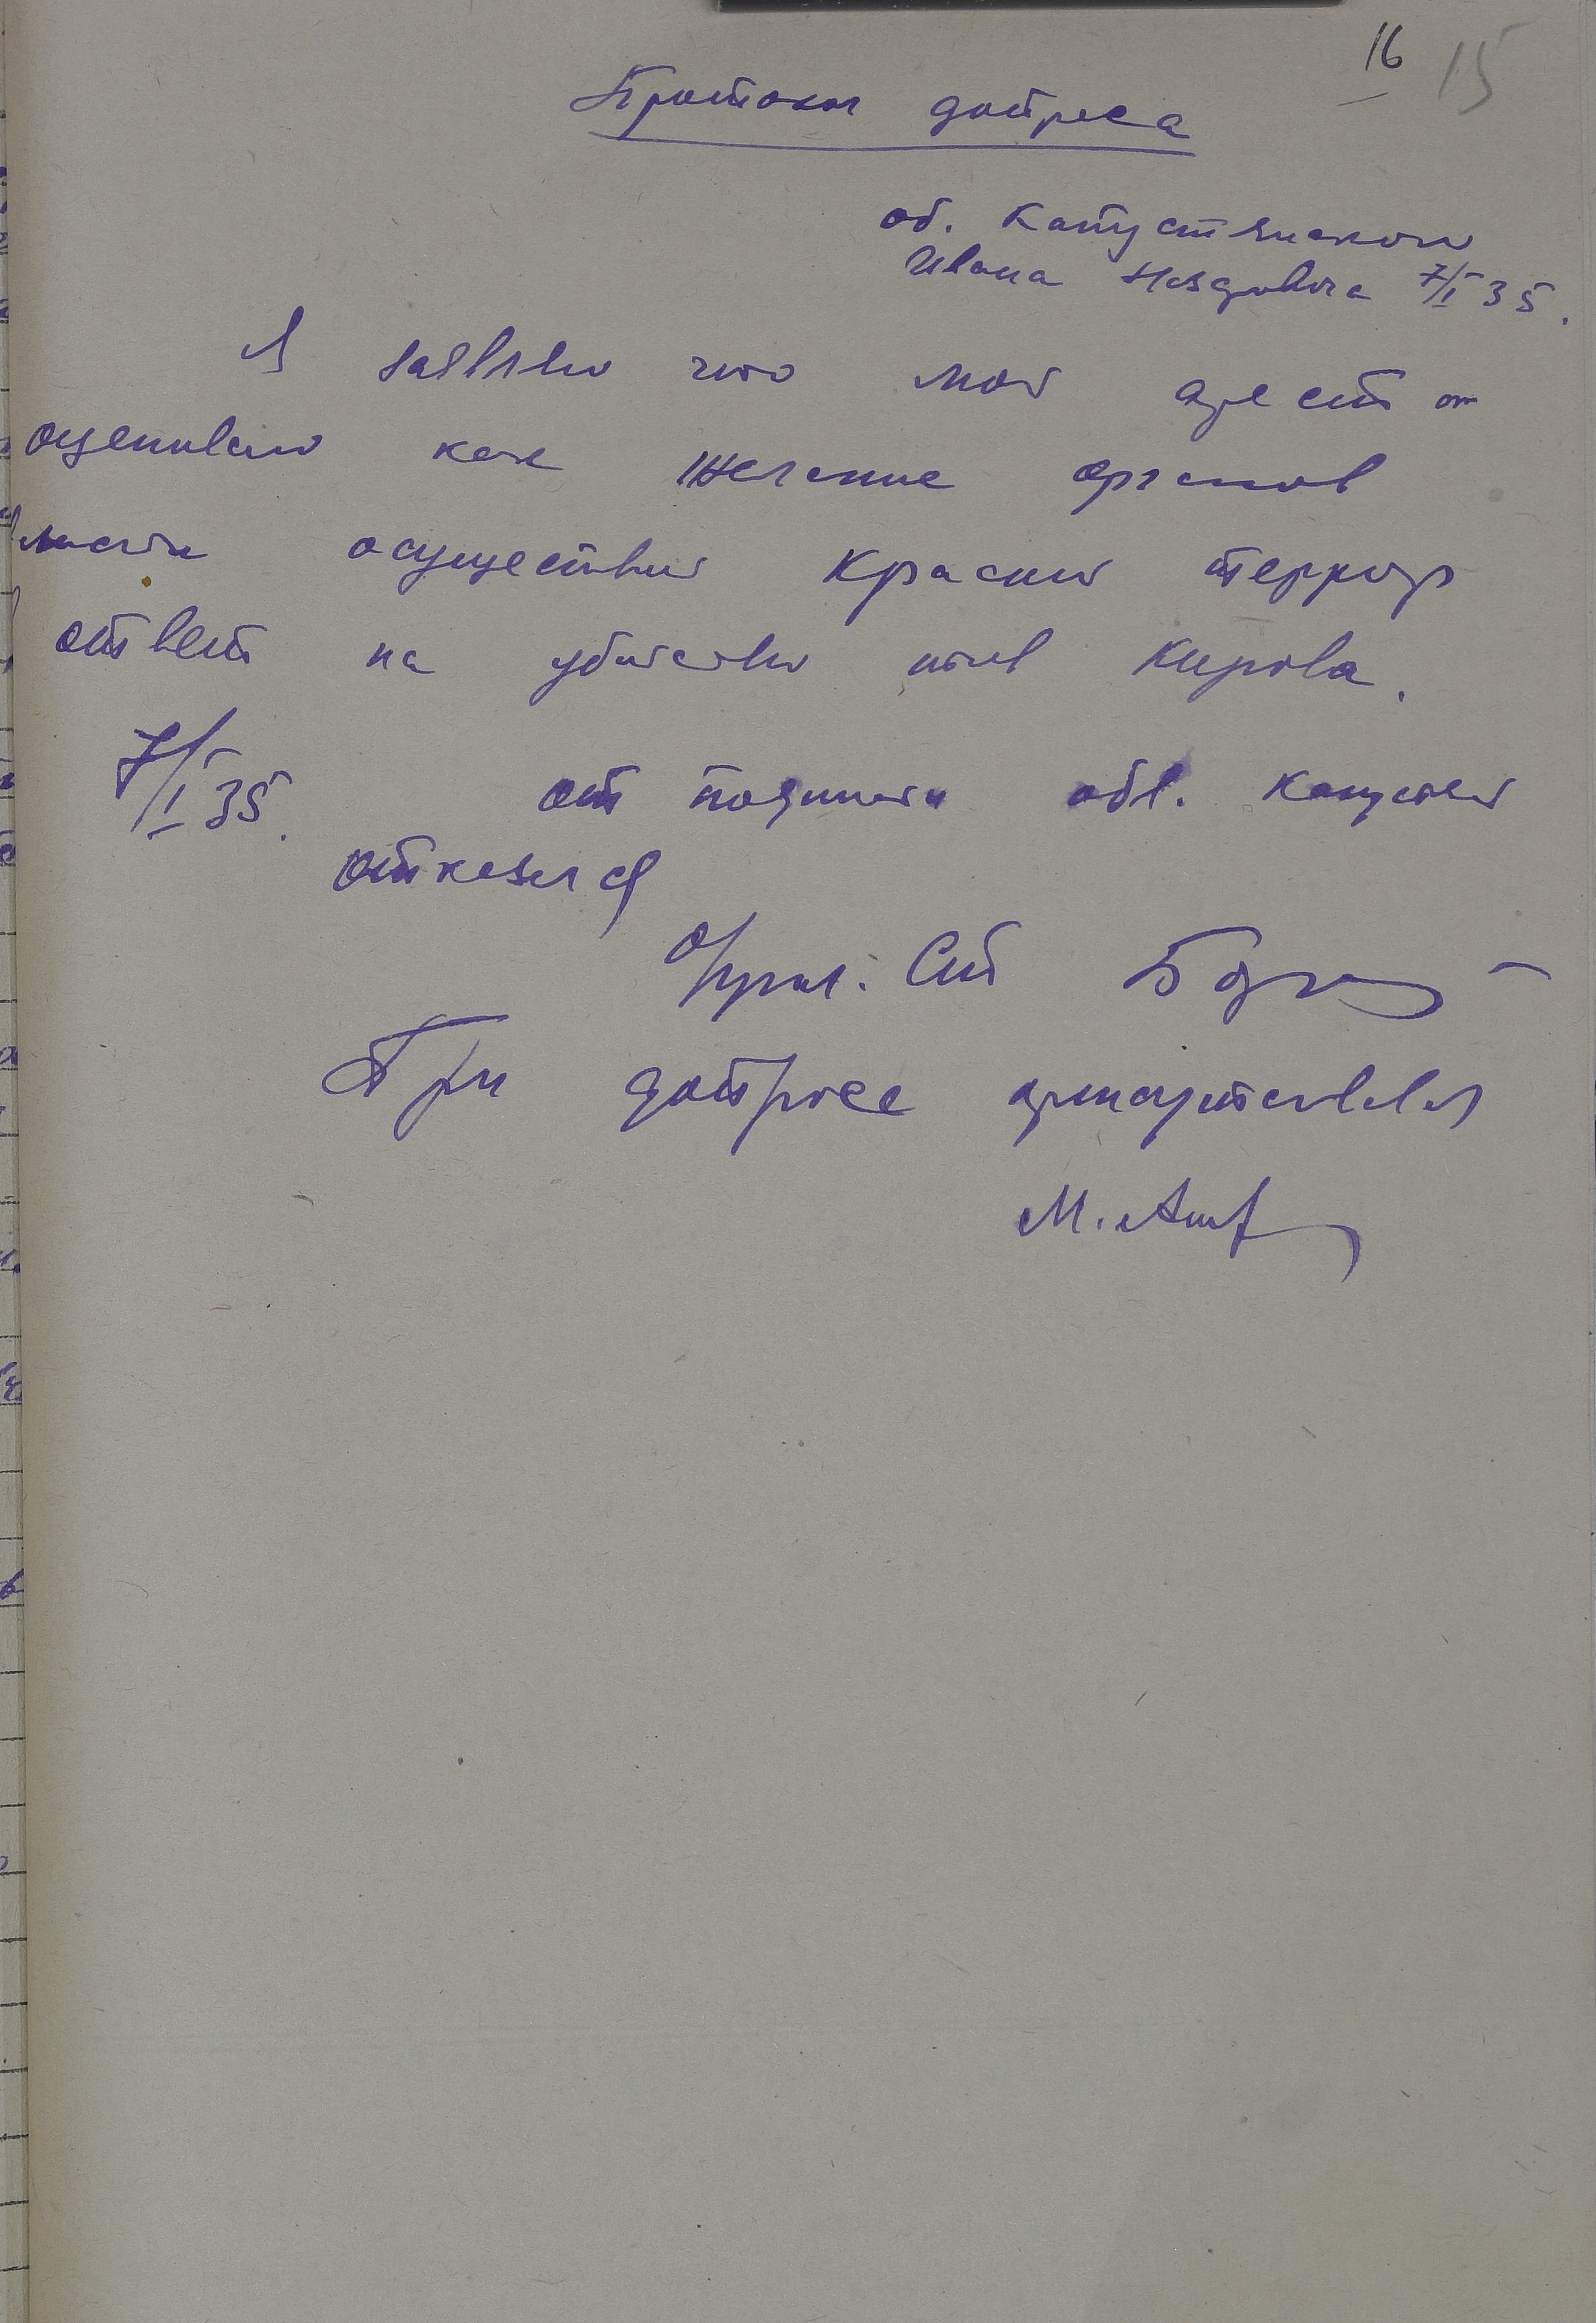 16 15
Протокол допроса
об. Капустянского
Ивана 7/I 35.
Я заявляю что мой арест
оцениваю как желание органов
власти осуществит красный террор
ответ на убийство Кирова.
7/I 35. от подписи обв. Капустян
отказался
При допросе присутствовал
М.